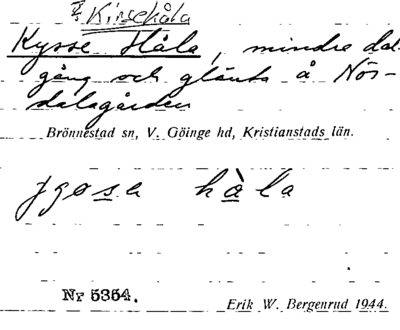 Kirsehåla
Kysse Håla, mindre dal-
gång och glänta å Nör-
dalagården
Brönnestad sn, V. Göinge hd, Kristianstads län.
håla
Nr 5354.
Erik W. Bergenrud 1944.